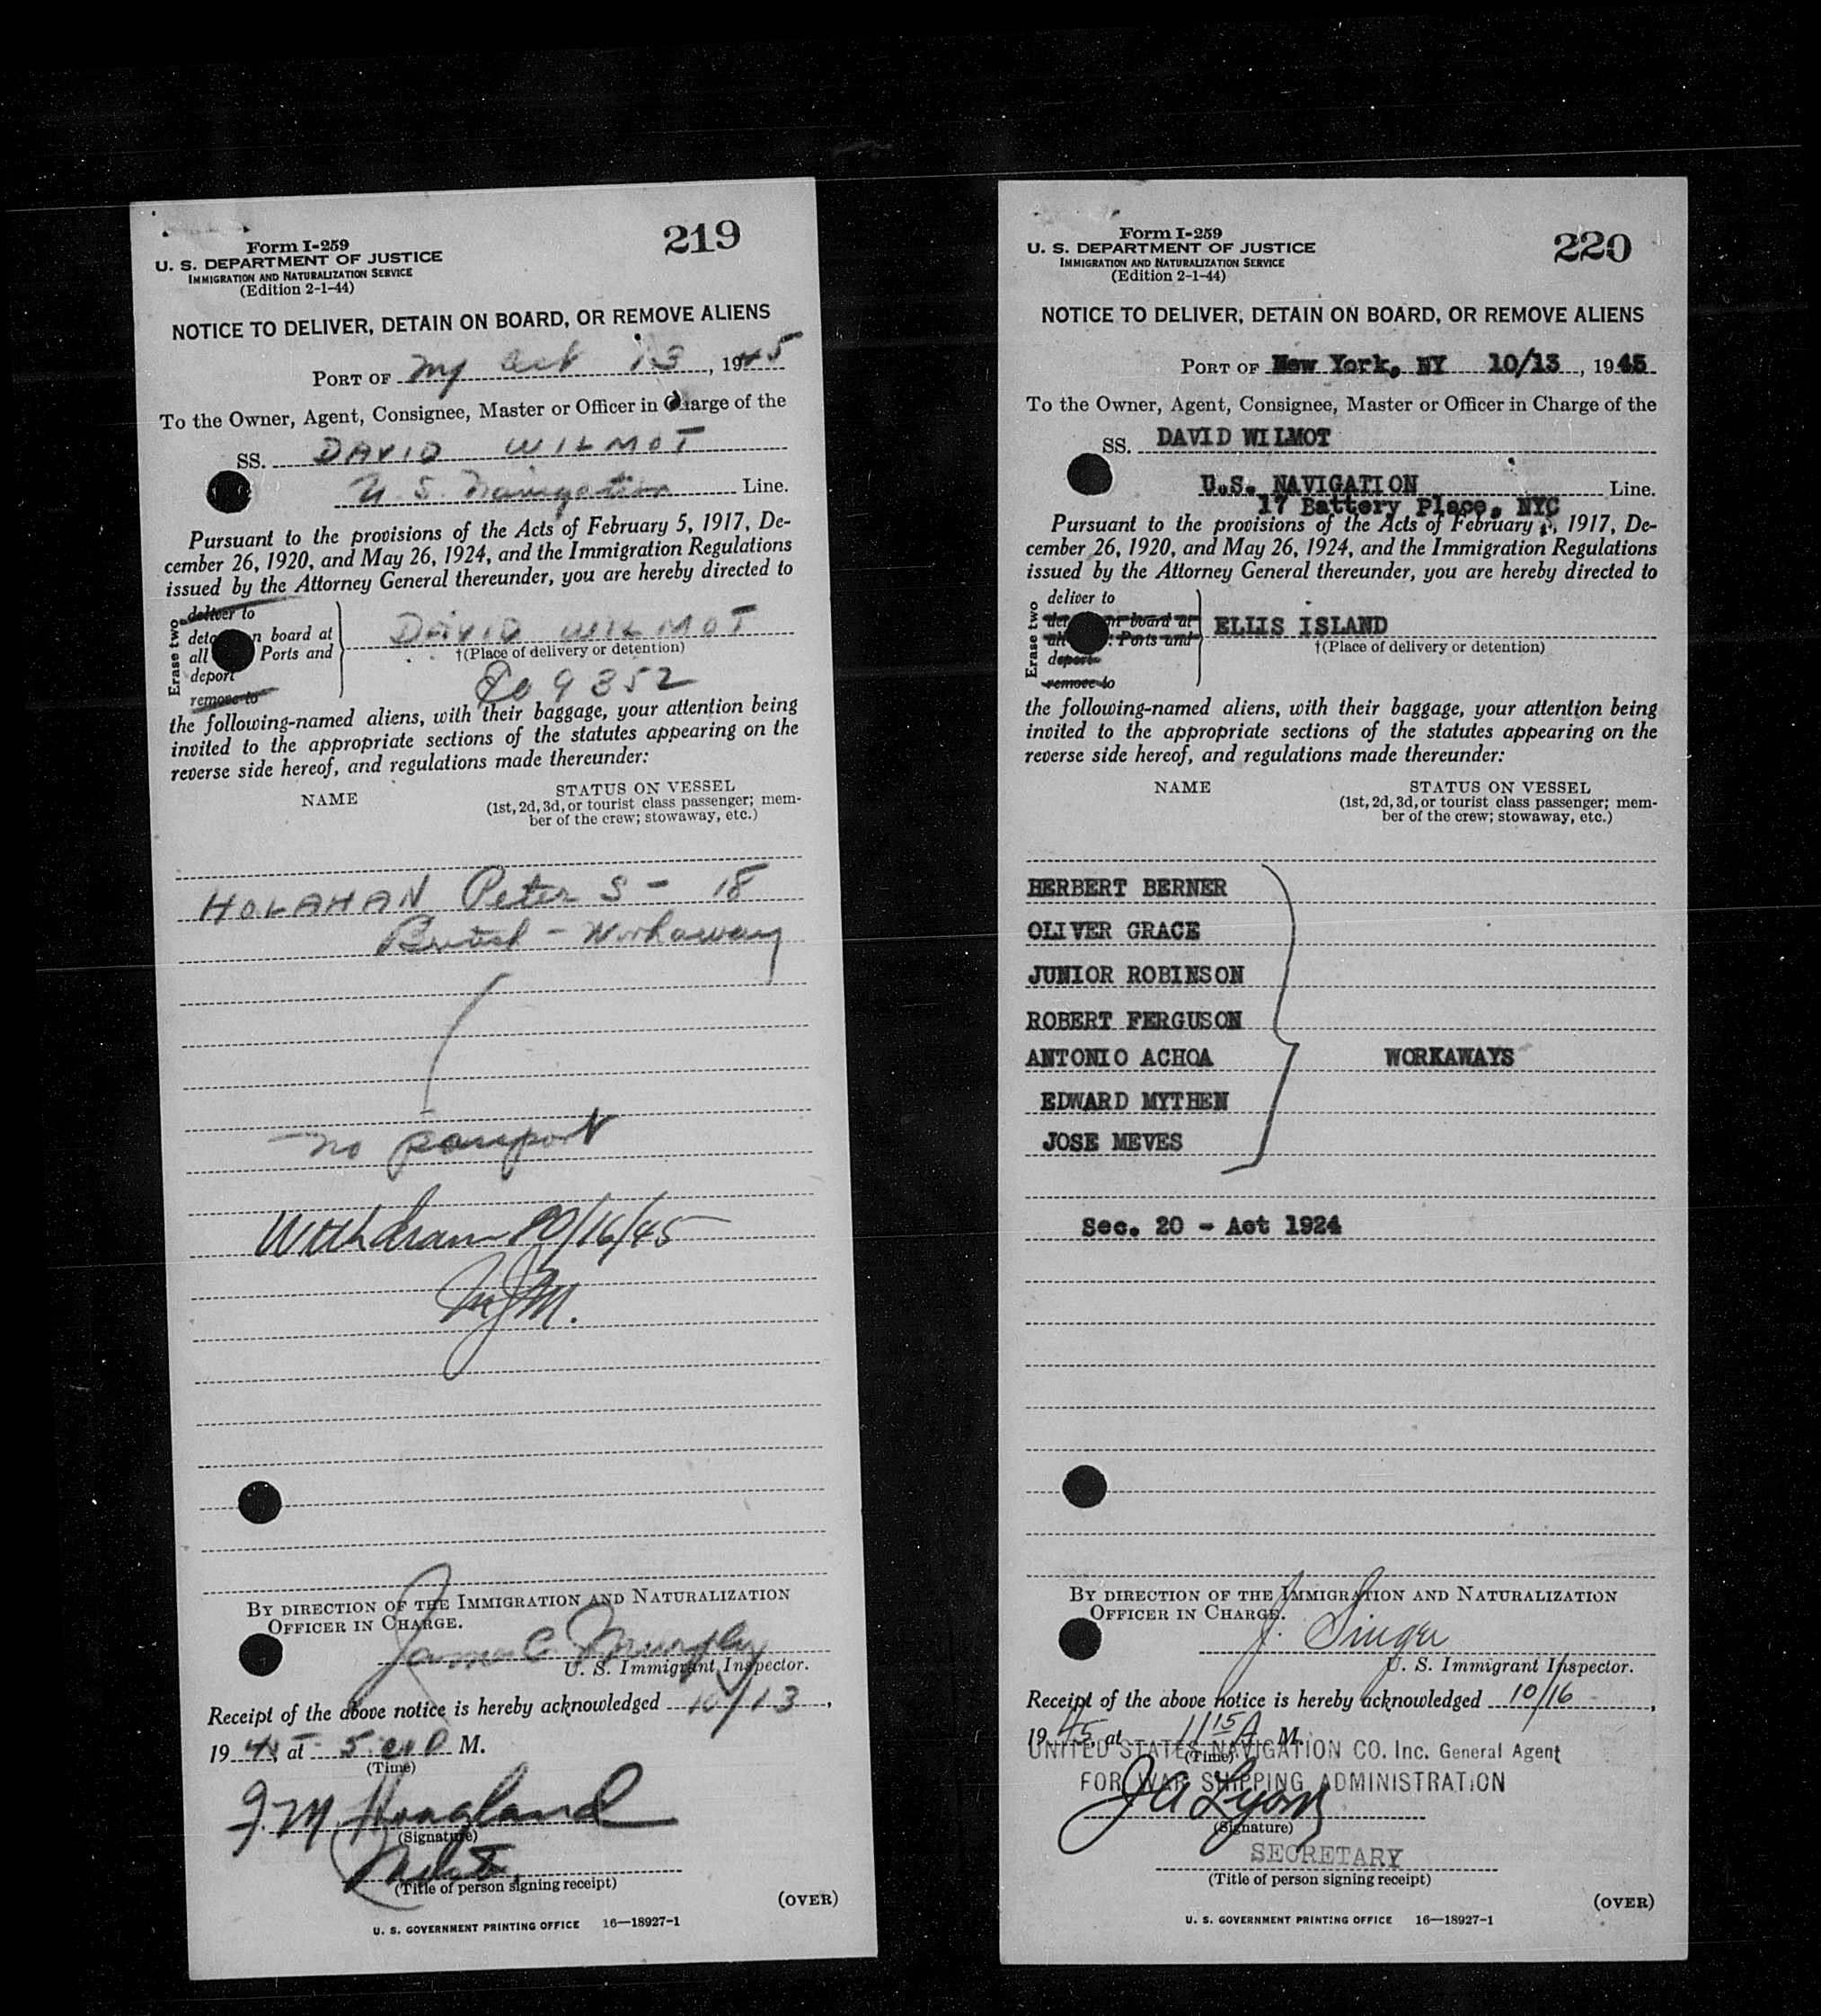 219
Form I-259
U. S. DEPARTMENT OF JUSTICE
IMMIGRATION AND NATURALIZATION SERVICE
(Edition 2-1-44)
NOTICE TO DELIVER, DETAIN ON BOARD, OR REMOVE ALIENS
PORT OF NY Oct 13, 1945
To the Owner, Agent, Consignee, Master or Officer in Charge of the
SS. DAVID WILMOT
U.S. Navigation Line.
Pursuant to the provisions of the Acts of February 5, 1917, De-
cember 26, 1920, and May 26, 1924, and the Immigration Regulations
issued by the Attorney General thereunder, you are hereby directed to
Erase two
deliver to
n board at
all Ports and
deport
remove to
DAVID WILMOT
†(Place of delivery or detention)
9352
the following-named aliens, with their baggage, your attention being
invited to the appropriate sections of the statutes appearing on the
reverse side hereof, and regulations made thereunder:
NAME
STATUS ON VESSEL
(1st, 2d, 3d, or tourist class passenger; mem-
ber of the crew; stowaway, etc.)
HOLAHAN Peter S - 18
British - Workaway
no passport
Withdrawn 10/16/45
BY DIRECTION OF THE IMMIGRATION AND NATURALIZATION
OFFICER IN CHARGE.
James C Murphy
U. S. Immigrant Inspector.
Receipt of the above notice is hereby acknowledged 10/13,
1945, at 5 P M.
(Time)
J.M. Hoagland
(Signature)
(Title of person signing receipt)
(OVER)
U. S. GOVERNMENT PRINTING OFFICE 16—18927-1
220
Form I-259
U. S. DEPARTMENT OF JUSTICE
IMMIGRATION AND NATURALIZATION SERVICE
(Edition 2-1-44)
NOTICE TO DELIVER, DETAIN ON BOARD, OR REMOVE ALIENS
PORT OF New York, NY 10/13, 1945
To the Owner, Agent, Consignee, Master or Officer in Charge of the
SS. DAVID WILMOT
U.S. NAVIGATION Line.
17 Battery Place, NYC
Pursuant to the provisions of the Acts of February 5, 1917, De-
cember 26, 1920, and May 26, 1924, and the Immigration Regulations
issued by the Attorney General thereunder, you are hereby directed to
Erase two
deliver to
on board at
all Ports and
deport
remove to
ELLIS ISLAND
†(Place of delivery or detention)
the following-named aliens, with their baggage, your attention being
invited to the appropriate sections of the statutes appearing on the
reverse side hereof, and regulations made thereunder:
NAME
STATUS ON VESSEL
(1st, 2d, 3d, or tourist class passenger; mem-
ber of the crew; stowaway, etc.)
HERBERT BERNER
OLIVER GRACE
JUNIOR ROBINSON
ROBERT FERGUSON
ANTONIO ACHOA WORKAWAYS
EDWARD MYTHEN
JOSE MEVES
Sec. 20 - Act 1924
BY DIRECTION OF THE IMMIGRATION AND NATURALIZATION
OFFICER IN CHARGE.
J. Singer
U. S. Immigrant Inspector.
Receipt of the above notice is hereby acknowledged 10/16,
1945, at 11 15 A. M.
(Time)
UNITED STATES NAVIGATION CO. Inc. General Agent
FOR WAR SHIPPING ADMINISTRATION
J A Lyons
(Signature)
SECRETARY
(Title of person signing receipt)
(OVER)
U. S. GOVERNMENT PRINTING OFFICE 16—18927-1